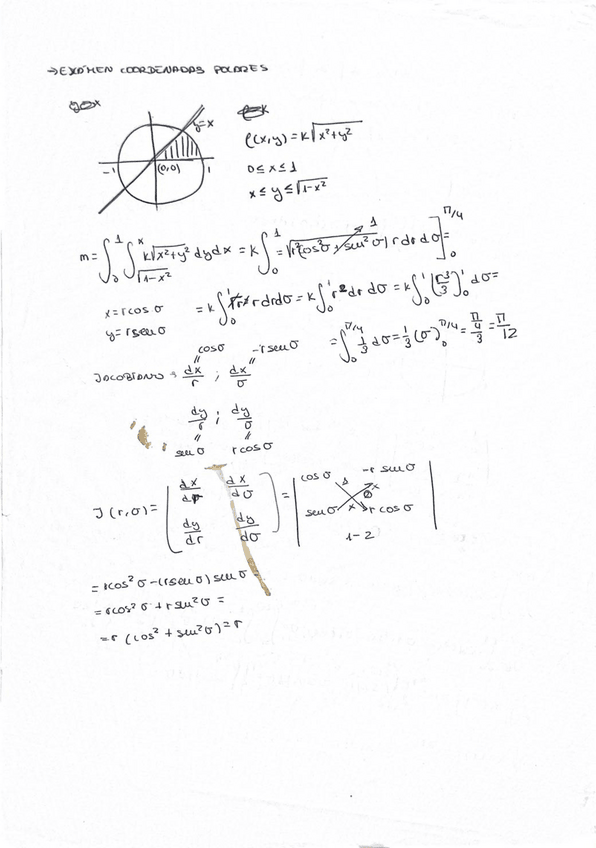 → EXÁMEN COORDENADAS POLARES
y=x
-1 (0,0) 1
ρ(x,y) = k√x²+y²
0 ≤ x ≤ 1
x ≤ y ≤ √1-x²
m = ∫₀¹ ∫_√1-x²^x k√x²+y² dydx = k∫₀¹ = √r²(cos²σ + sen²σ) r dr dσ]₀^π/4 =
1
x = r cos σ
y = r sen σ
= k∫₀¹ √r² r dr dσ = k∫₀¹ r² dr dσ = k∫₀¹ (r³/3)₀¹ dσ =
= ∫₀^π/4 1/3 dσ = 1/3 (σ)₀^π/4 = π/4/3 = π/12
cos σ -r sen σ
JACOBIANO = dx/r ; dx/σ
dy/r ; dy/σ
sen σ r cos σ
J (r,σ) = ( dx/dr dx/dσ ) = | cos σ -r sen σ |
( dy/dr dy/dσ ) | sen σ r cos σ |
1-2
= r cos² σ - (r sen σ) sen σ =
= r cos² σ + r sen² σ =
= r (cos² + sen² σ) = r